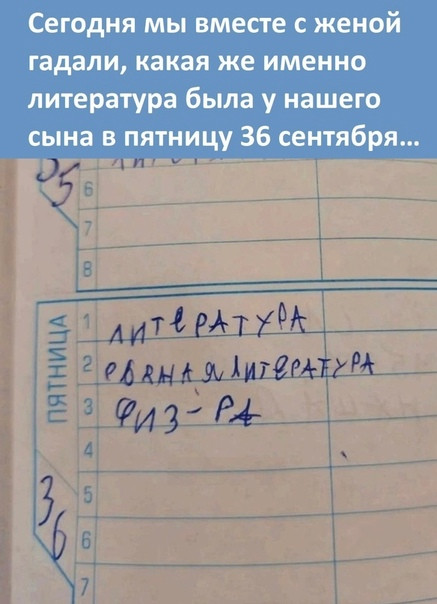 Сегодня мы вместе с женой
гадали, какая же именно
литература была у нашего
сына в пятницу 36 сентября...
35
6
7
8
ПЯТНИЦА
1 ЛИТЕРАТУРА
2 ЛИТЕРАТУРА
3 ФИЗ-РА
4
36
5
6
7